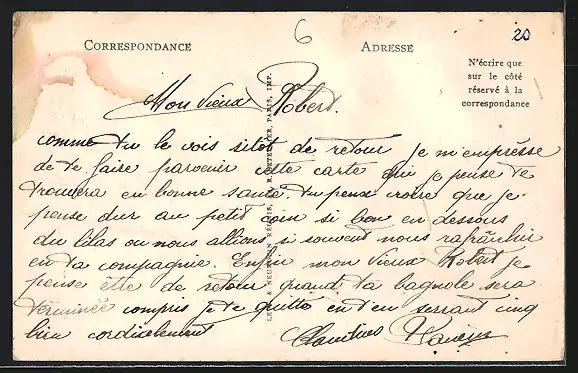 6
20
CORRESPONDANCE
ADRESSE
N'écrire que
sur le côté
réservé à la
correspondance
Mon vieux Robert.
comme tu le vois sitôt de retour je m'empresse
de te faire parvenir cette carte qui je pense te
trouvera en bonne santé. tu peux croire que je
pense dur au petit coin si bon en dessous
du lilas ou nous allions si souvent nous rafraîchir
en ta compagnie. Enfin mon vieux Robert je
pense être de retour quand ta bagnole sera
terminée compris je te quitte en t'en serrant cinq
bien cordialement